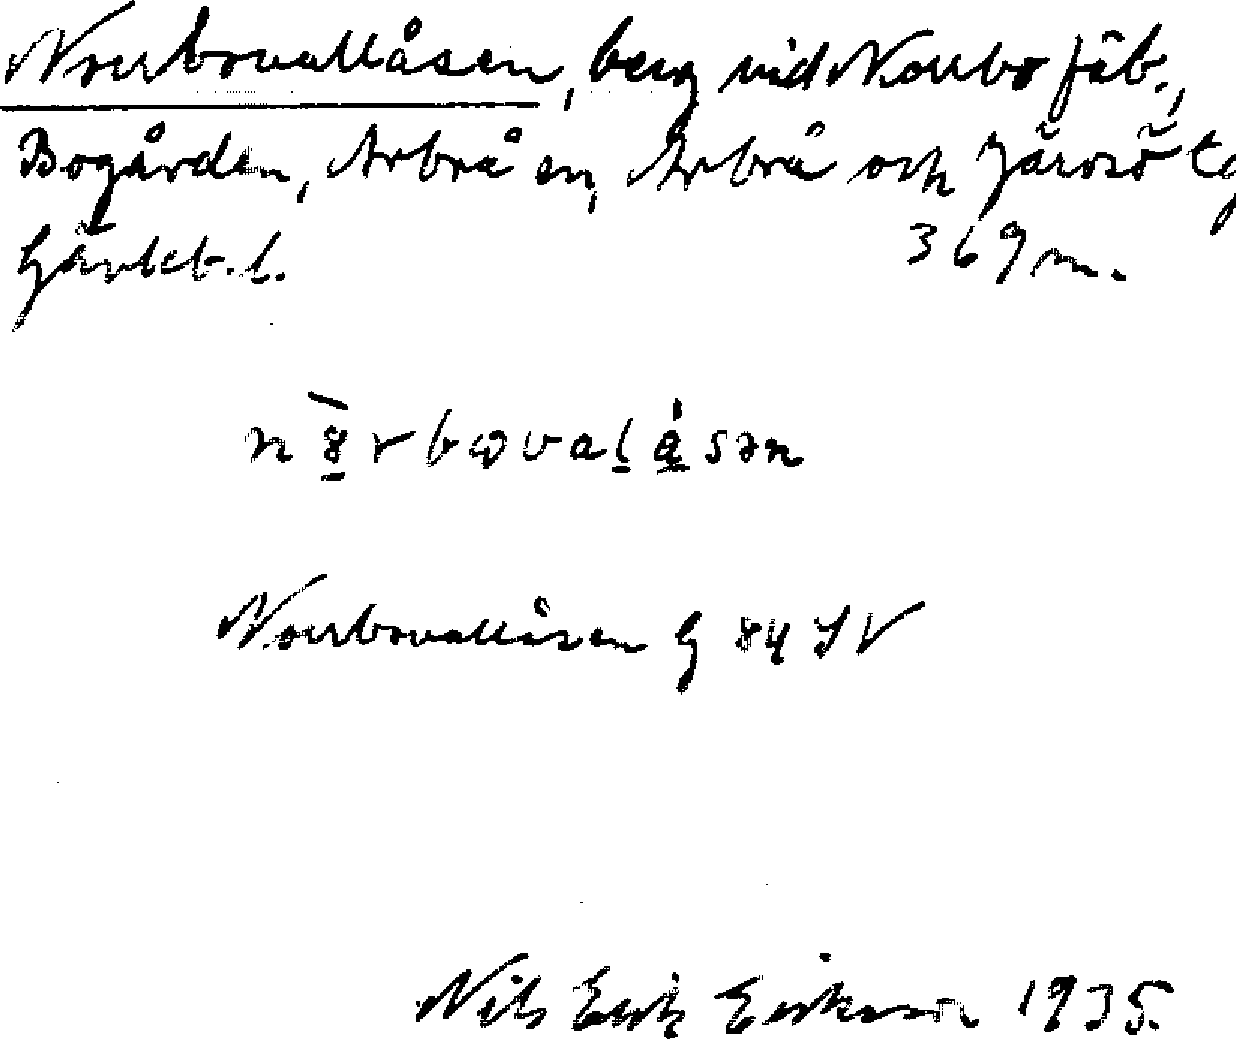 Norrbovallåsen, berg vid Norrbo fäb.,
Bogården, Arbrå sn, Arbrå och Järvsö tg
Gävleb. l.
369 m.
Norrbovallåsen G 84 SV
Nils Erik Eriksson 1935.